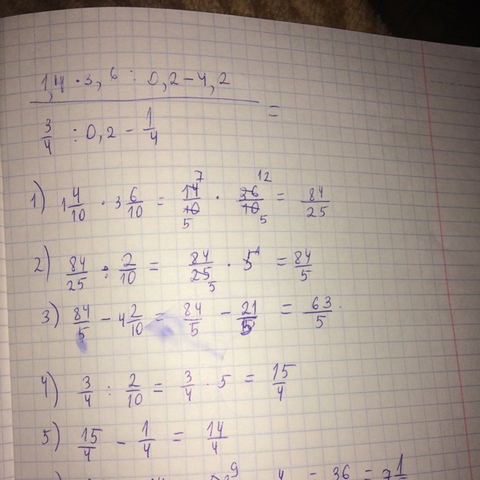 1,4 · 3,6 : 0,2 − 4,2 / 3/4 : 0,2 − 1/4 =
1) 1 4/10 · 3 6/10 = 14/10 7 5 · 36/10 12 5 = 84/25
2) 84/25 : 2/10 = 84/25 5 · 5 1 = 84/5
3) 84/5 − 4 2/10 = 84/5 − 21/5 = 63/5
4) 3/4 : 2/10 = 3/4 · 5 = 15/4
5) 15/4 − 1/4 = 14/4
9 4 = 36 = 7 1